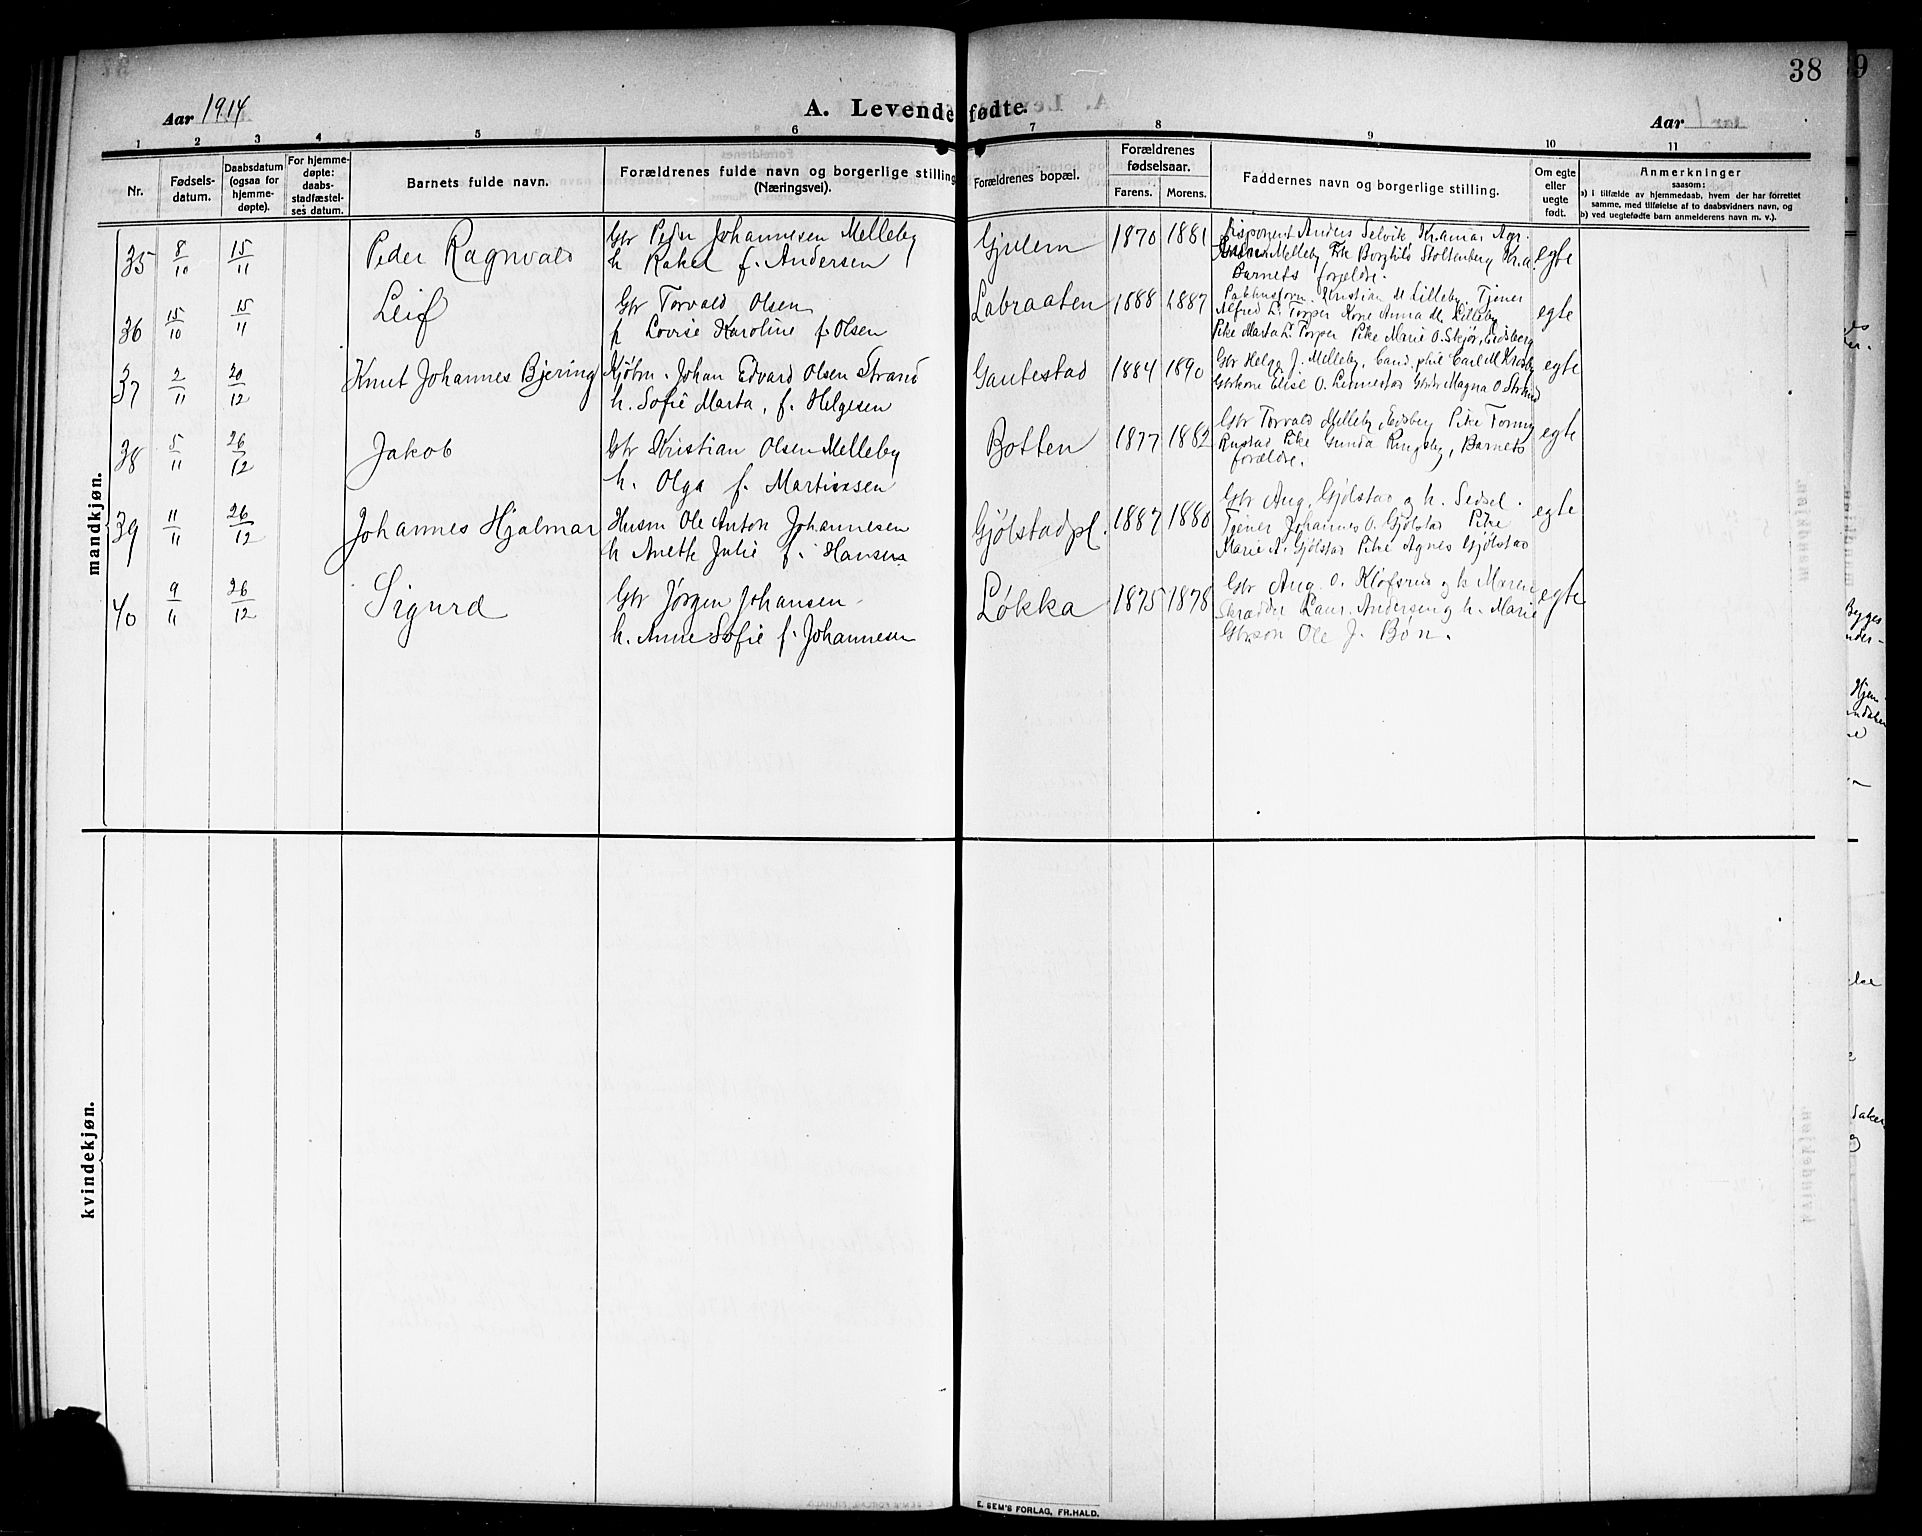 38
Aar 1914
A. Levendefødte.
Aar
1 2 3 4 5 6 7 8 9 10 11
Nr.
Fødsels-datum.
Daabsdatum (ogsaa for hjemme-døpte).
For hjemme-døpte: daabs-stadfæstel-ses datum.
Barnets fulde navn.
Forældrenes fulde navn og borgerlige stilling (Næringsvei).
Forældrenes bopæl.
Forældrenes fødselsaar.
Farens. Morens.
Faddernes navn og borgerlige stilling.
Om egte eller uegte født.
Anmerkninger
saasom:
a) i tilfælde av hjemmedaab, hvem der har forrettet samme, med tilføielse af to daabsvidners navn, og
b) ved uegtefødte barn anmelderens navn m. v.).
mandkjøn.
35 8/10 15/11 Peder Ragnvald
Gbr Peder Johannesen Melleby
h Rakel f. Andersen
Gjulem 1870 1881
Disponent Anders Selvik Kr.ania, Agr.
Melleby Frk Borghild Stoltenberg Kr.a.
Barnets forældre.
egte
36 15/10 15/11 Leif
Gbr Torvald Olsen
h Lovise Karoline f Olsen
Labraaten 1888 1887
Pakhusform. Kristian M. Lilleby. Tjener
Alfred L. Torper Kone Anna M. Lilleby
Pike Marta L. Torper Pike Marie O. Skjør, Eidsberg
egte
37 2/11 20/12 Knut Johannes Bjering
Kjøbm. Johan Edvard Olsen Strand
h. Sofie Marta, f. Helgesen
Gautestad 1884 1890
Gbr Helge J. Melleby, Cand. phil Carl M.
Gbrkone Elise O. Linnestad Gbrdr Magna O. Strand
egte
38 5/11 26/12 Jakob
Gbr Kristian Olsen Melleby
h. Olga f. Martinsen
Botten 1877 1882
Gbr Torvald Melleby, Eidsberg Pike
Rustad Pike Gunda Ringsby, Barnets
forældre.
egte
39 11/11 26/12 Johannes Hjalmar
Husm Ole Anton Johannesen
h Anette Julie f. Hansen
Gjølstadpl. 1887 1880
Gbr Aug. Gjølstad og h. Sedsel.
Tjener Johannes O. Gjølstad Pike
Marie A. Gjølstad Pike Agnes Gjølstad
egte
40 9/11 26/12 Sigurd
Gbr Jørgen Johansen
h. Anne Sofie f. Johannesen
Løkka 1875 1878
Gbr Aug. O. Kløfsrud og h. Maren
Skrædder Laur. Andersen og h. Marie
Gbrsøn Ole J. Bøn.
egte
kvindekjøn.
E. SEM'S FORLAG, FR.HALD.